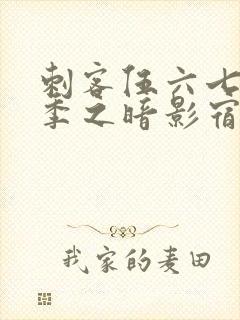 刺客伍六七
季之暗影宿
我家的麦田